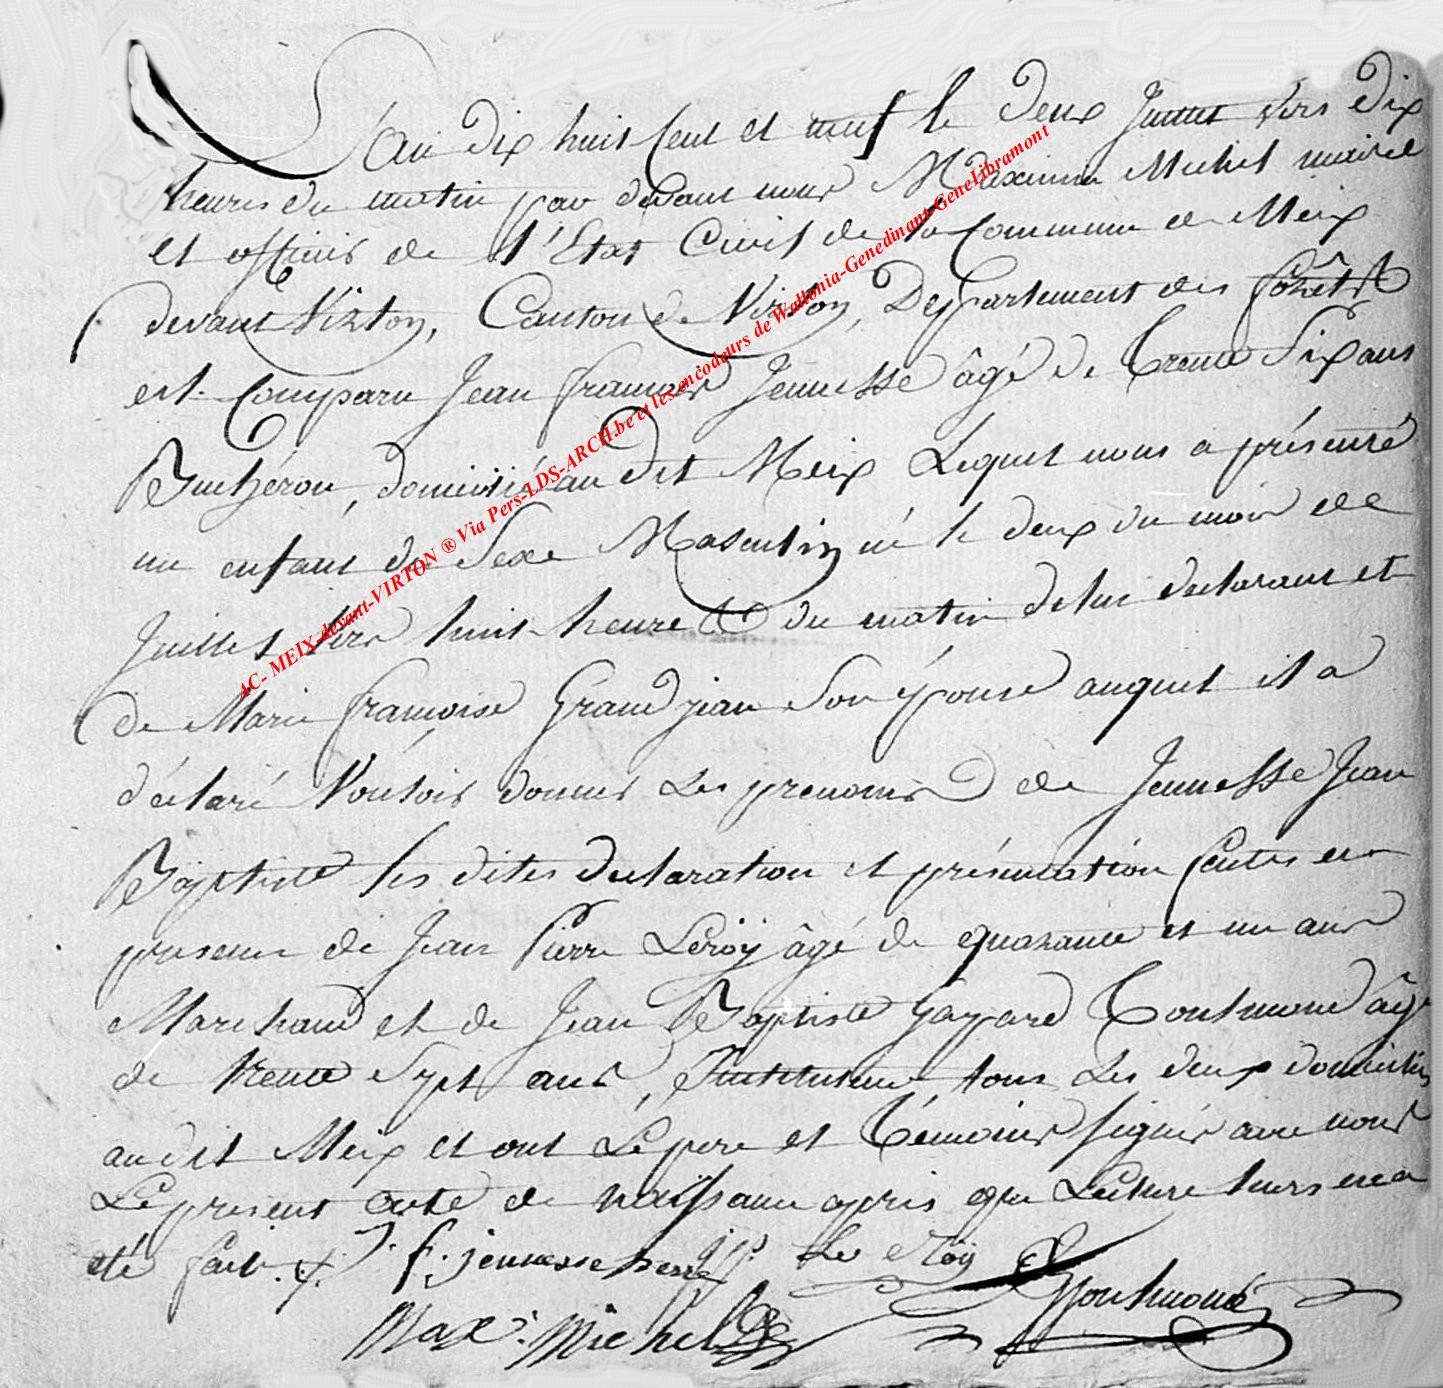 L'An dix huit Cent et neuf le deux Juillet vers dix
heures du matin par devant nous Maximin Michel maire
et officier de l'Etat Civil de la Commune de Meix
devant Virton, Canton de Virton, Departement des forêts
est Comparu Jean françois Jeunesse âgé de Trente Six ans
Bucheron, domicilié au dit Meix Lequel nous a présenté
un enfant de Sexe Masculin né le deux du mois de
Juillet vers huit heures du matin de lui declarant et
de Marie françoise Grandjean Son épouse auquel il a
déclaré Vouloir donner Les prenoms de Jeunesse Jean
Baptiste les dites declaration et présentation faites en
presence de Jean Pierre Leroÿ âgé de quarante et un ans
Marchand et de Jean Baptiste Gaspard Toutmond âgé
de trente Sept ans, Instituteur tous Les deux domiciliés
audit Meix et ont Le pere et Témoins signés avec nous
Le present acte de naissance apris que Lecture leurs en a
été fait. J. f. jeunesse Le Roÿ
Max: Michel
AC- MEIX-devant-VIRTON ® Via Pers-LDS-ARCH.be et les encodeurs de Wallonia-Genedinant-GeneLibramont